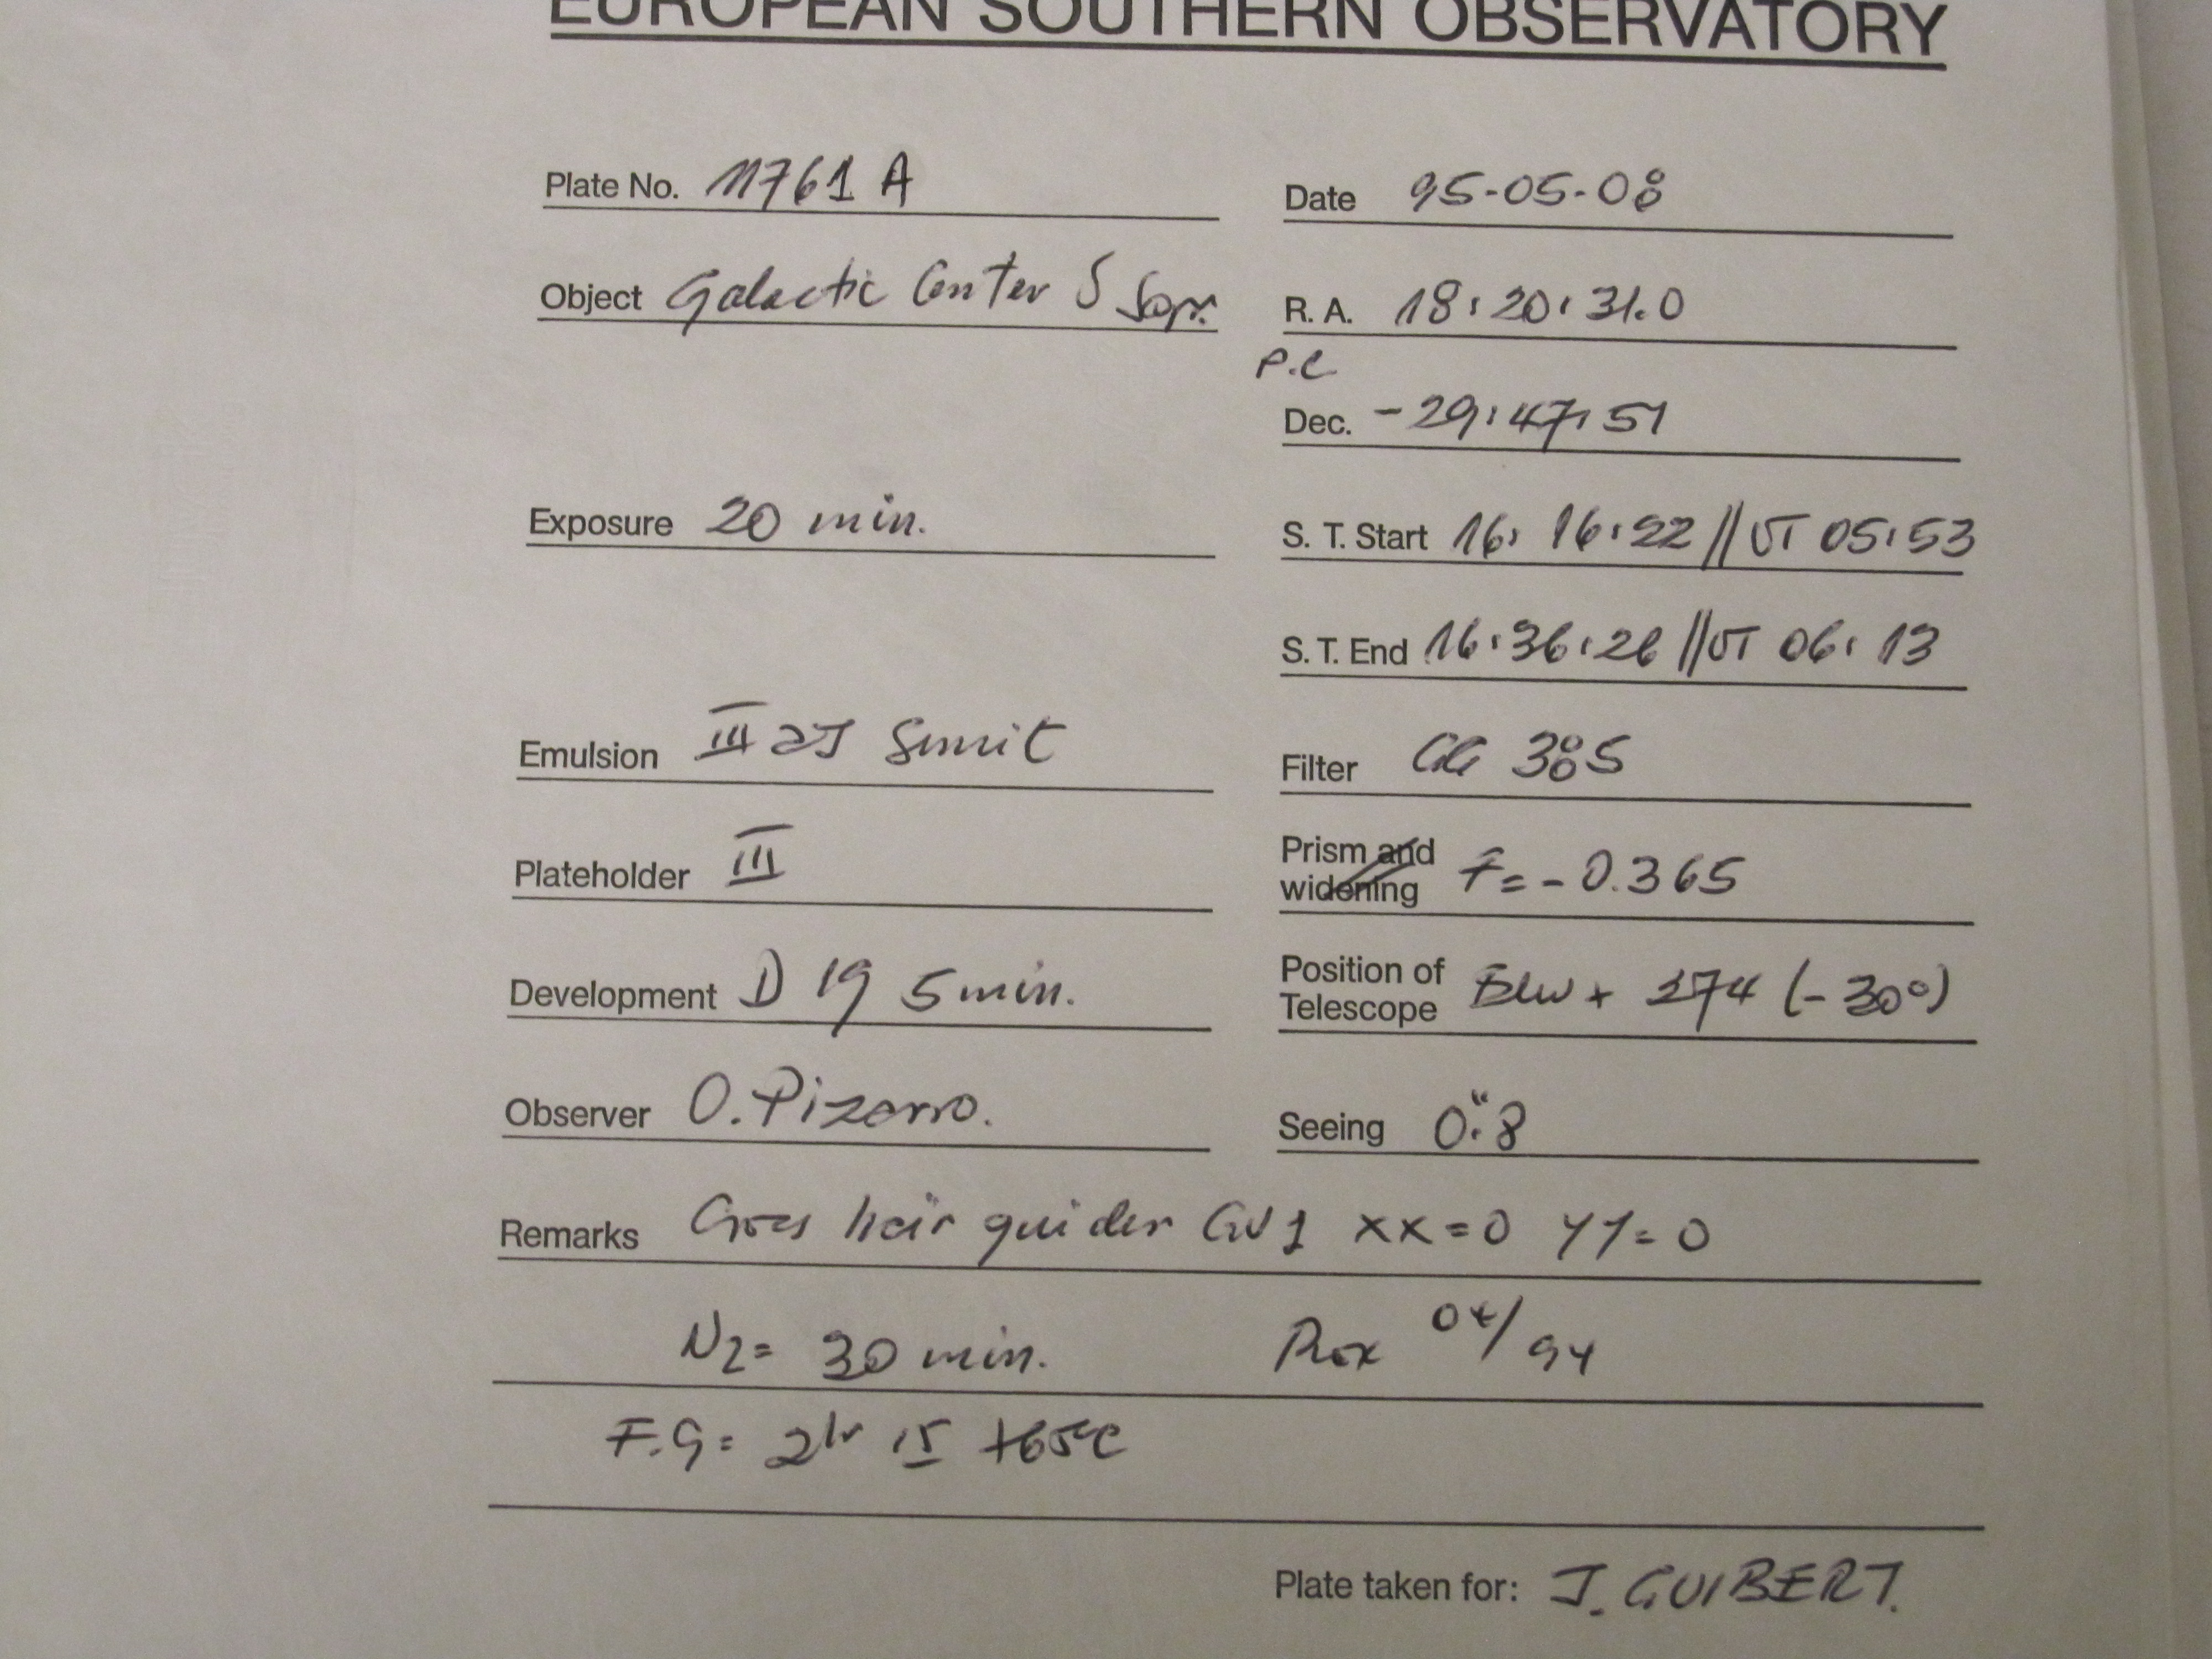 EUROPEAN SOUTHERN OBSERVATORY
Plate No. 11761 A
Date 95-05-08
Object Galactic Center S
R. A. 18:20:31.0
P.C
Dec. -29:47:51
Exposure 20 min.
S. T. Start 16: 16:22 // UT 05:53
S. T. End 16:36:26 // UT 06: 13
Emulsion III aJ
Filter GG 385
Plateholder III
Prism and widening F= - 0.365
Development D 19 5 min.
Position of Telescope + 274 (-30°)
Observer O. Pizarro.
Seeing 0."8
Remarks Cross hair guider GV1 XX=0 YY=0
N2= 30 min. 04/94
F.G= 2hr 15 +65°C
Plate taken for: J. GUIBERT.